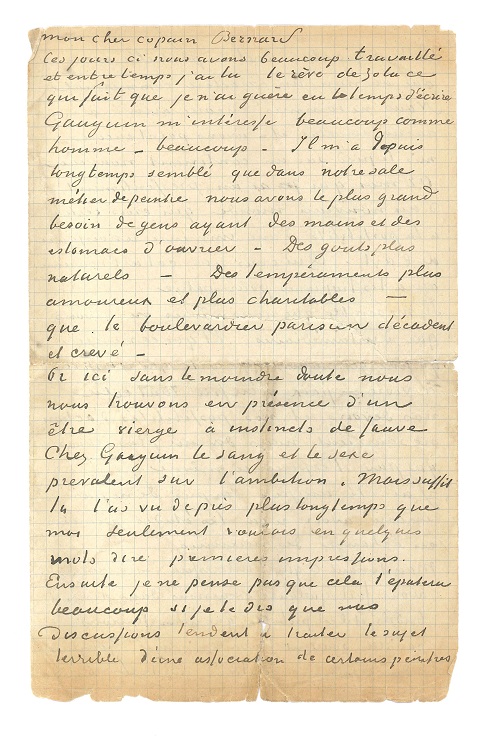 mon cher copain Bernard
Ces jours ci nous avons beaucoup travaillé
et entretemps j'ai lu le rêve de Zola ce
qui fait que je n'ai guère eu le temps d'écrire
Gauguin m'intéresse beaucoup comme
homme – beaucoup – Il m'a depuis
longtemps semblé que dans notre sale
métier de peintre nous avons le plus grand
besoin de gens ayant des mains et des
estomacs d'ouvrier – Des gouts plus
naturels – Des tempéraments plus
amoureux et plus charitables –
que le boulevardier parisien décadent
et crevé –
Or ici sans le moindre doute nous
nous trouvons en présence d'un
être vierge à instincts de fauve
Chez Gauguin le sang et le sexe
prevalent sur l'ambition. Mais suffit
tu l'as vu de près plus longtemps que
moi seulement voulais en quelques
mots dire premieres impressions.
Ensuite je ne pense pas que cela t'épatera
beaucoup si je te dis que nos
discussions tendent à traiter le sujet
terrible d'une association de certains peintres